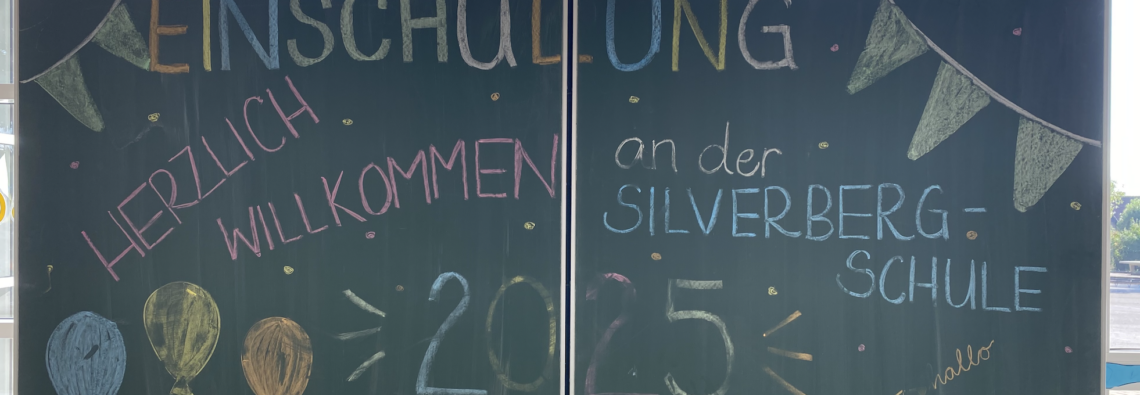 EINSCHULUNG
HERZLICH
WILLKOMMEN
an der
SILVERBERG-
SCHULE
2025
hallo